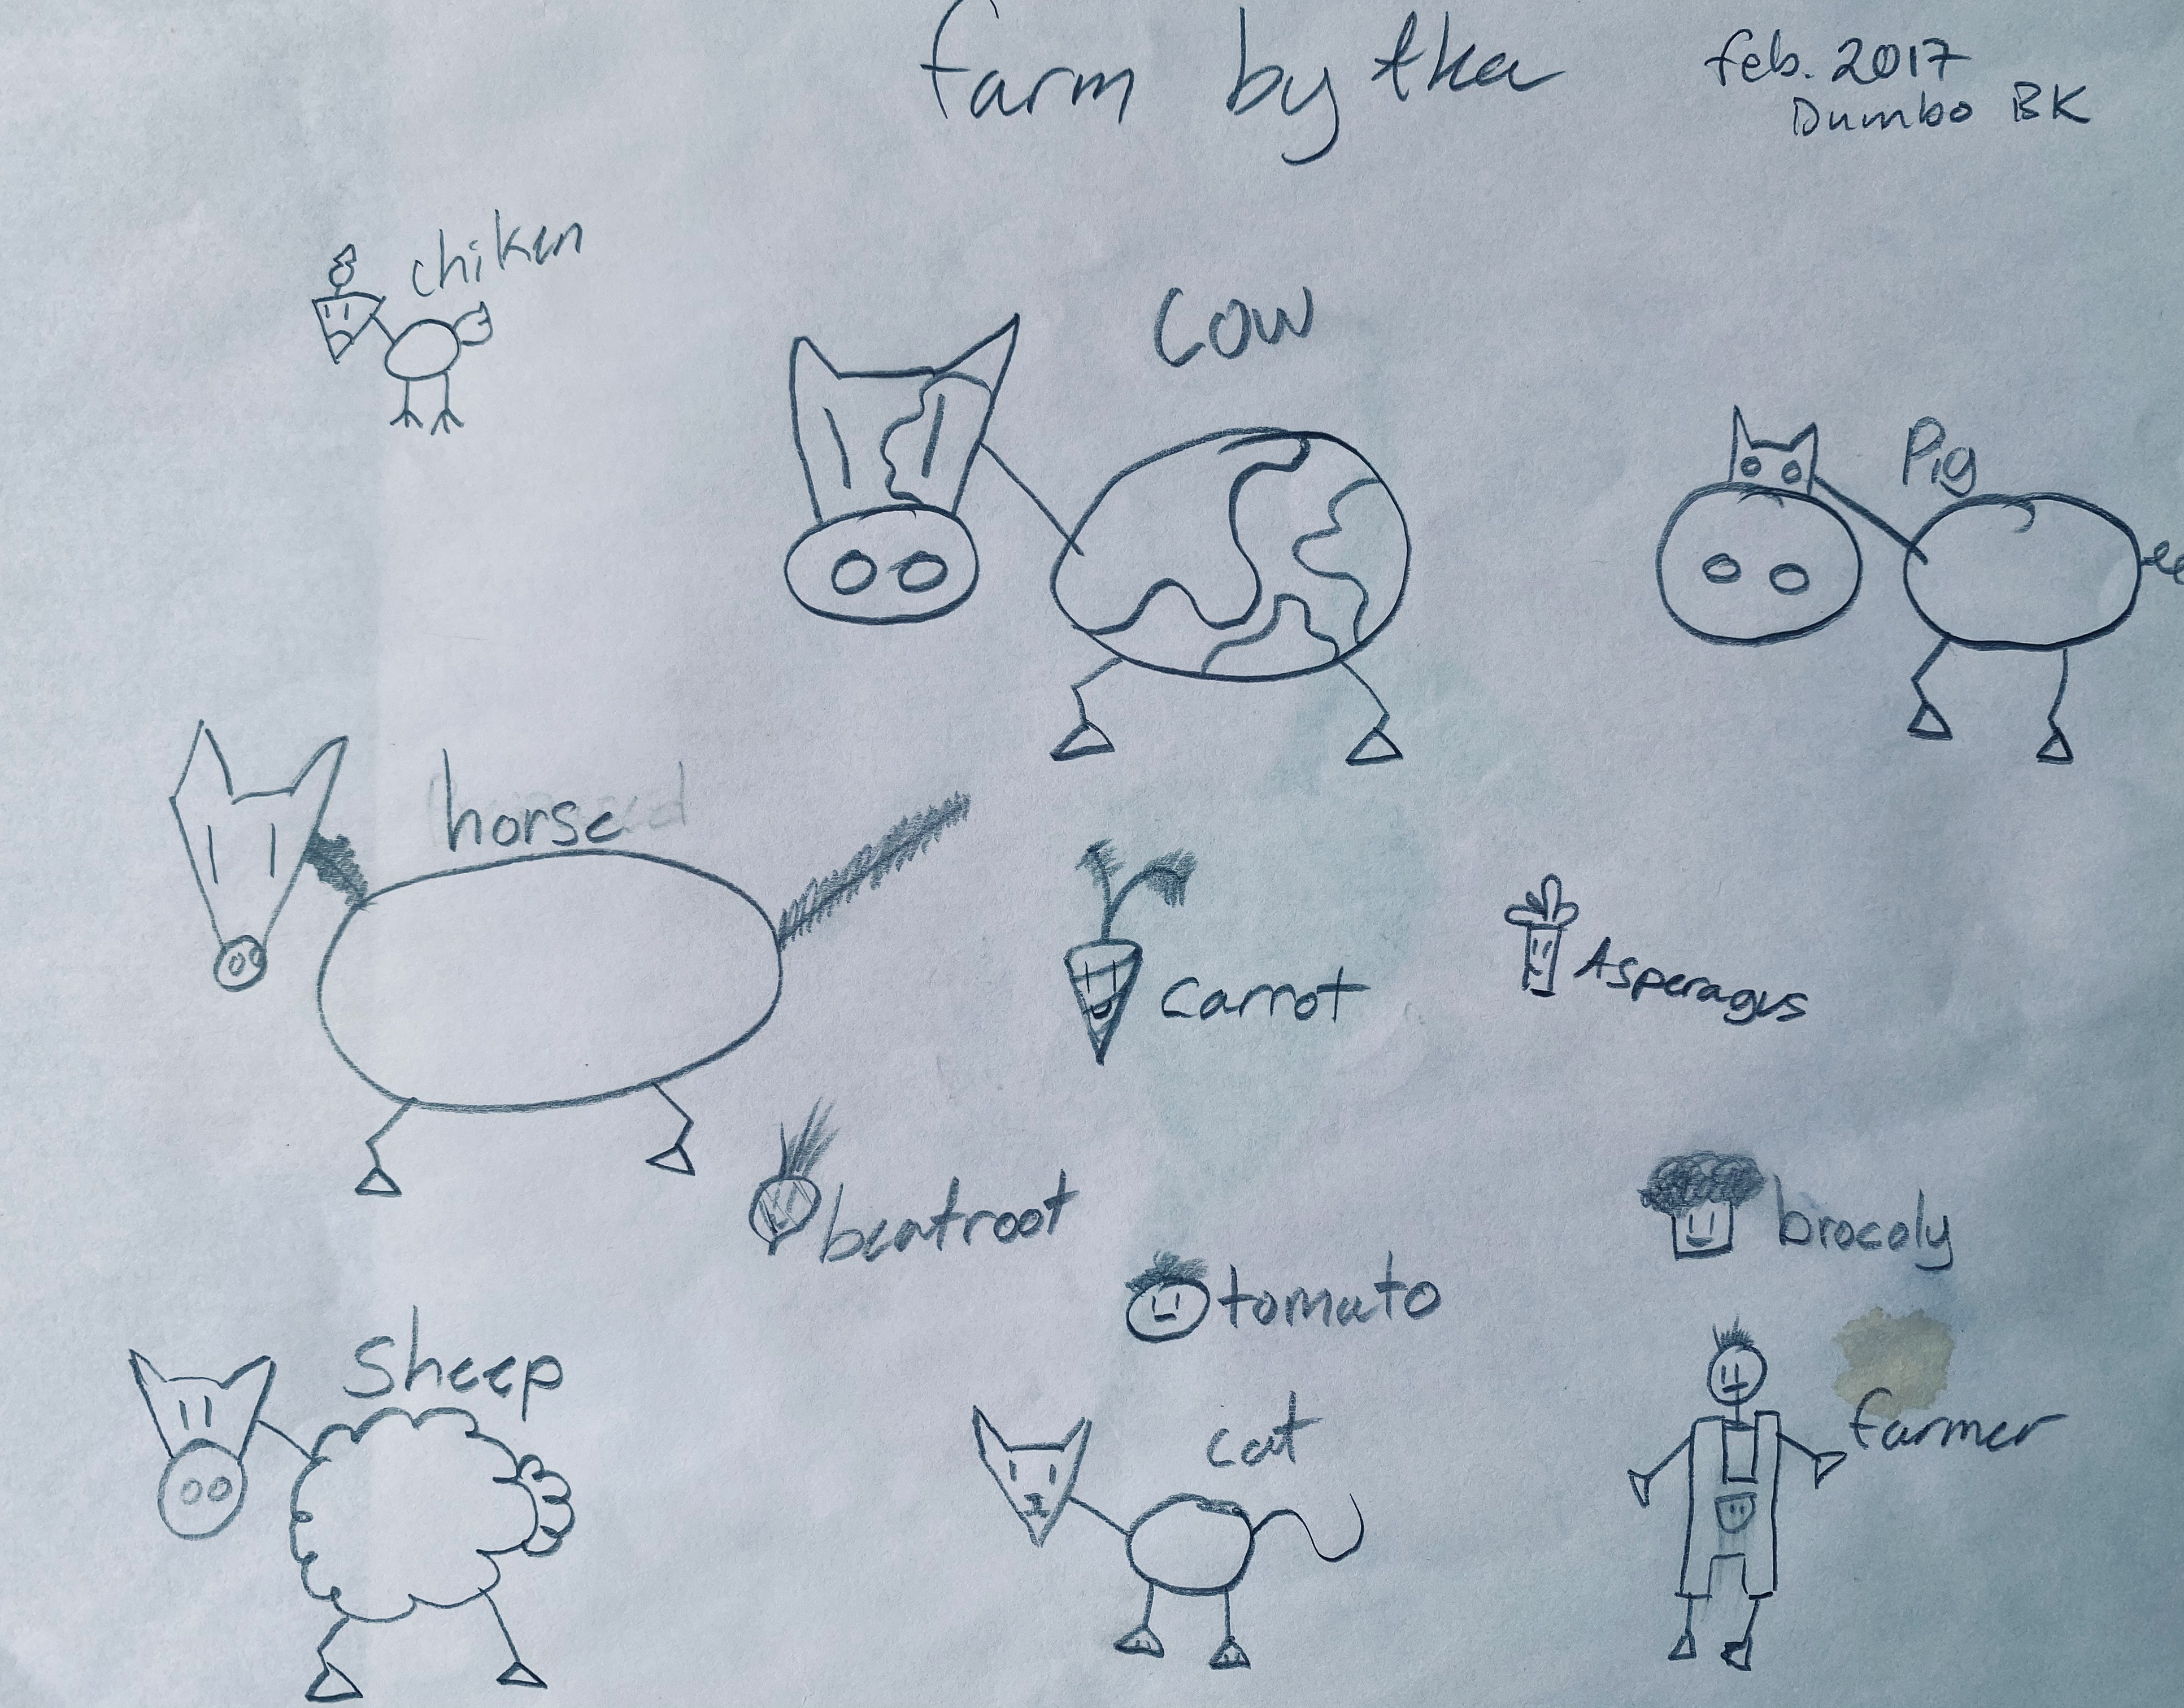 farm by tka
feb. 2017
Dumbo BK
chiken
cow
Pig
horse
carrot
Asperagus
beatroot
brocoly
tomato
Sheep
cat
farmer